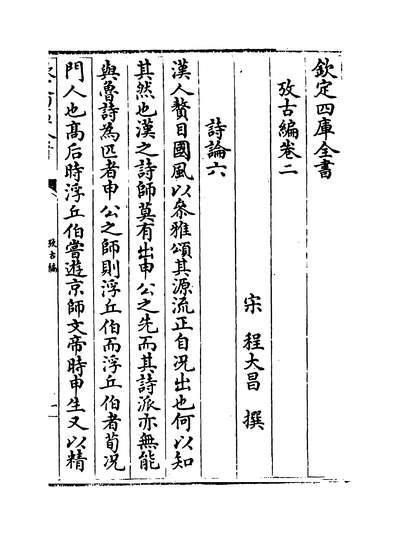 欽定四庫全書
攷古編卷二
宋 程大昌 撰
詩論六
漢人贅目國風以參雅頌其源流正自況出也何以知
其然也漢之詩師莫有出申公之先而其詩派亦無能
與魯詩為匹者申公之師則浮丘伯而浮丘伯者荀況
門人也髙后時浮丘伯嘗遊京師文帝時申生又以精
攷古編
一